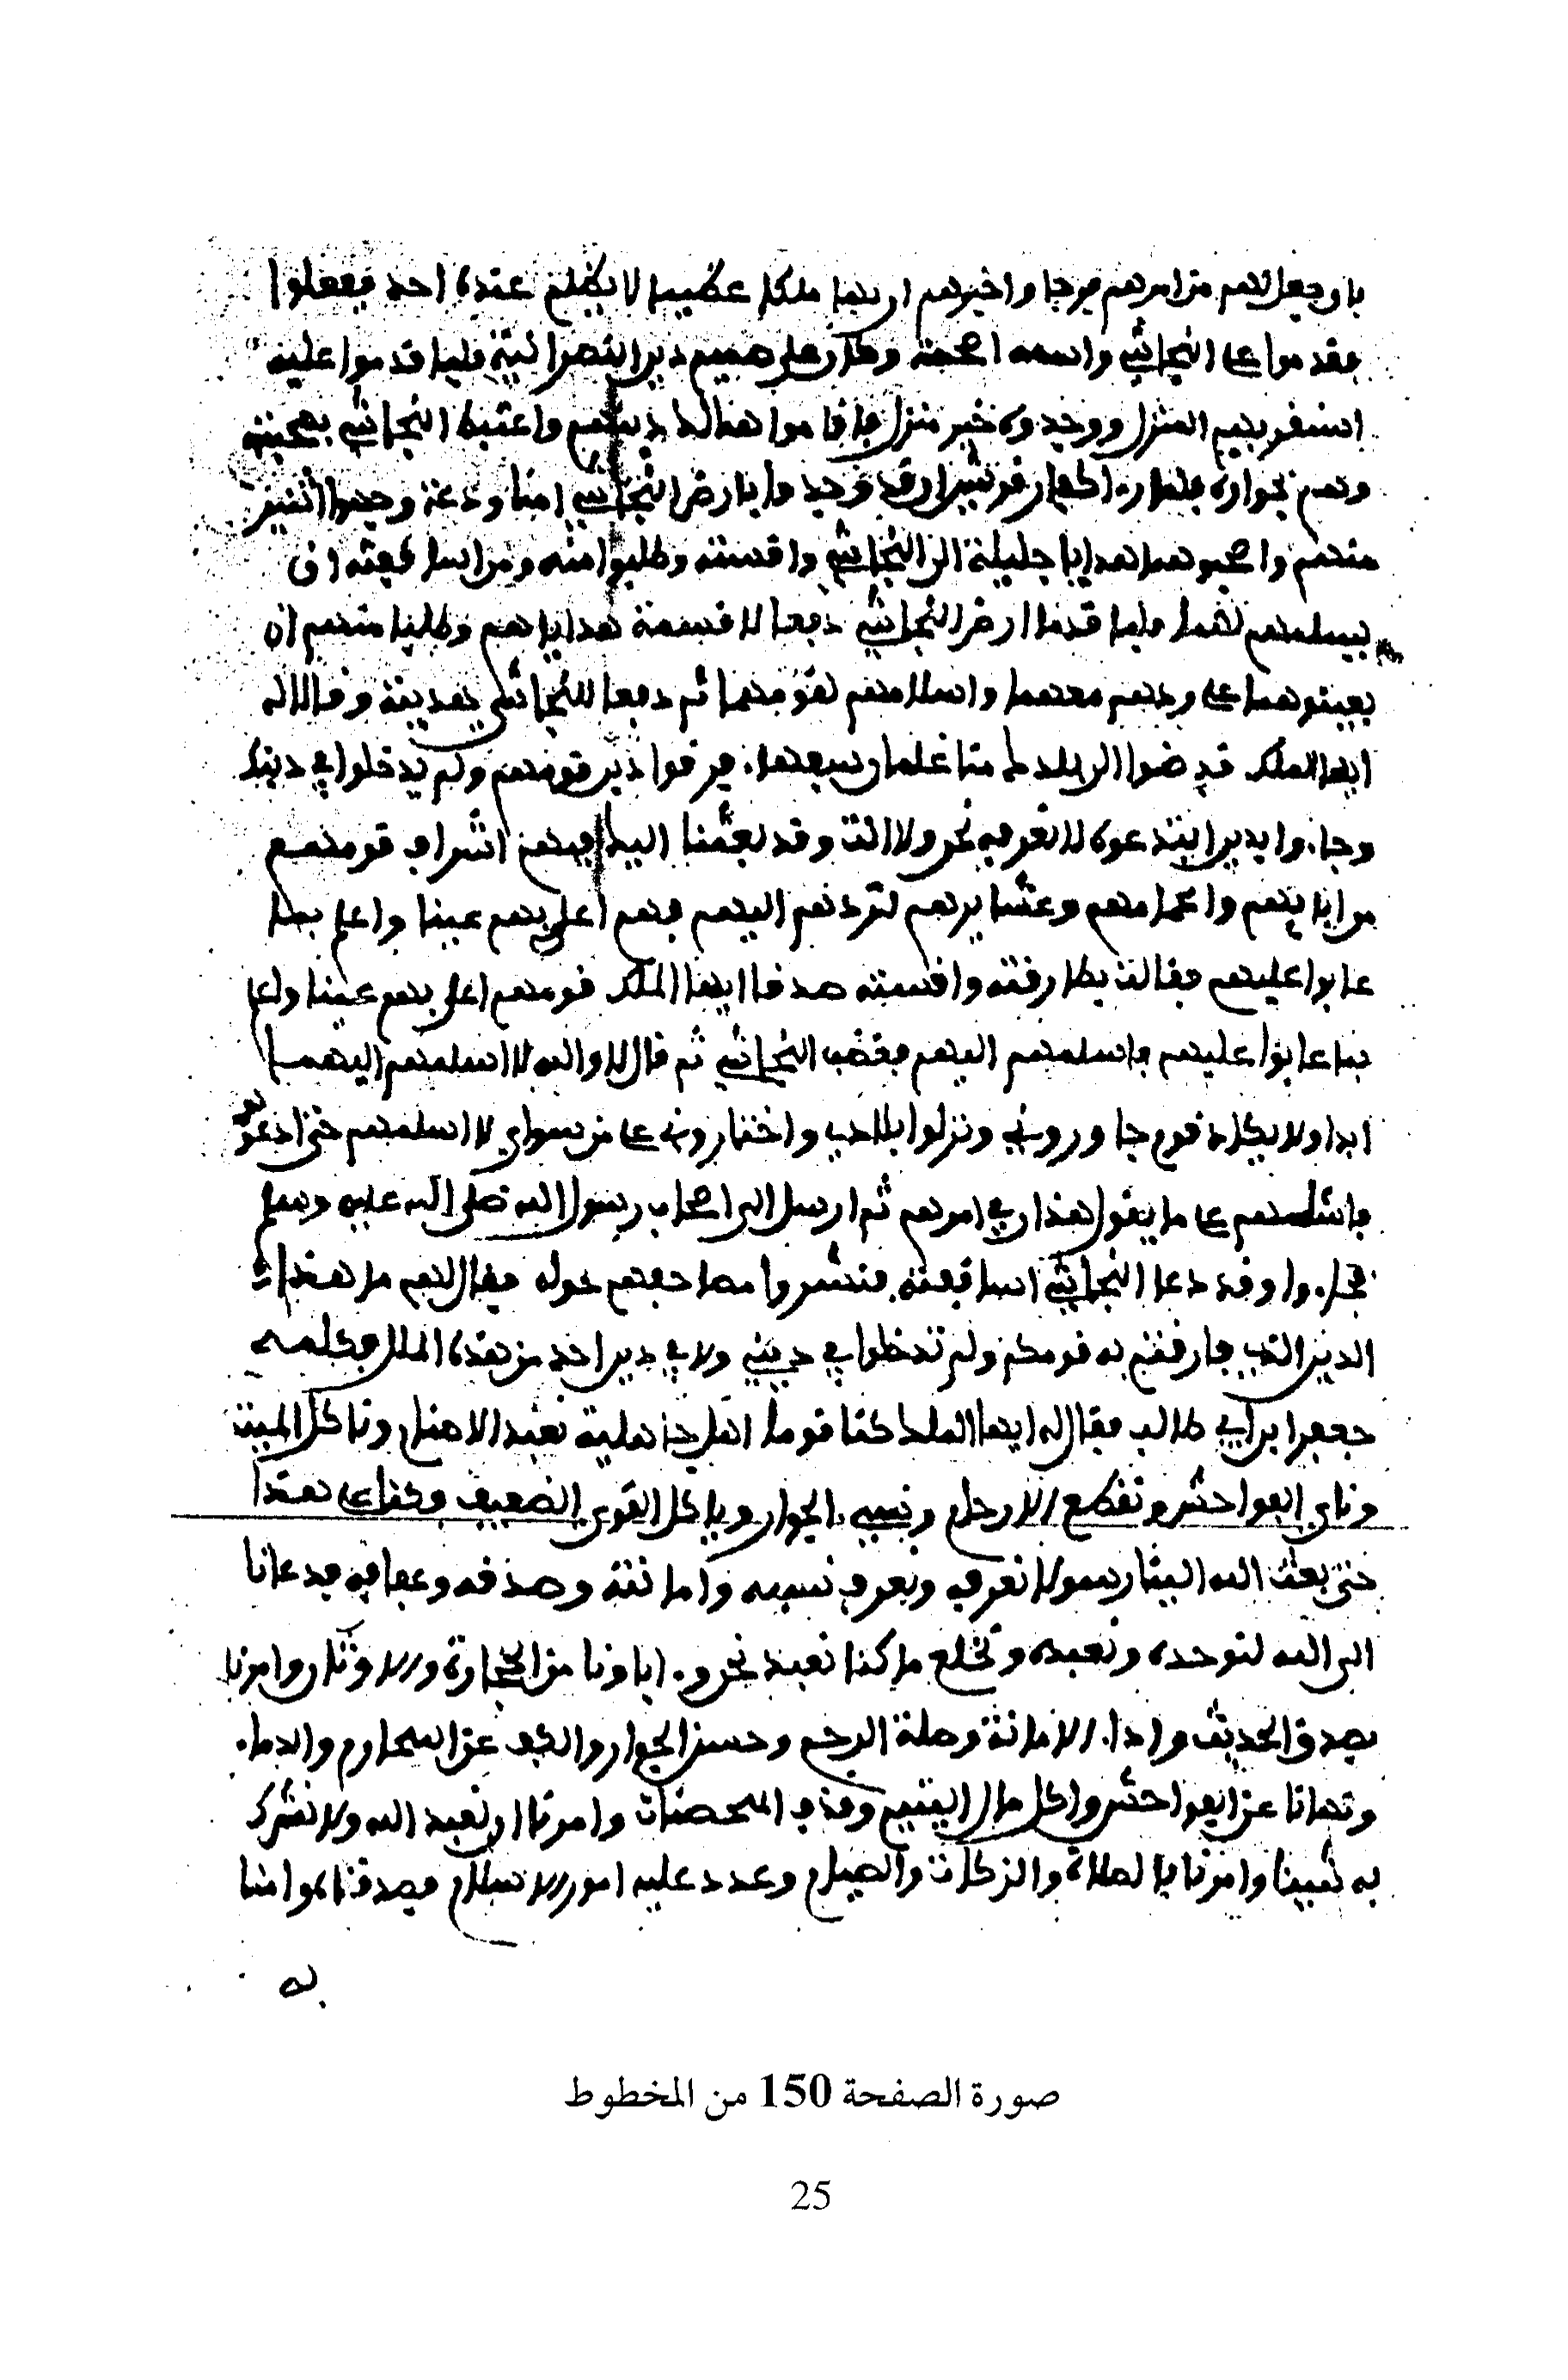 بان يجعل لهم من امرهم فرجا واخبرهم ان بها ملكا عظيما لا يظلم عنده احد ففعلوا
فقدموا على النجاشي واسمه اصحمة وكان على صميم دين النصرانية فلما قدموا عليه
استقر بهم المنزل ووجدوه خير منزل فاقاموا هنالك واغتبط النجاشي
وهم بجواره فلما راى كفار قريش ان قد وجدوا بارض النجاشي امنا ودعة وجهوا اثنين
منهم واصحبوهما هدايا جليلة الى النجاشي واقسته وطلبوا منه ومن اساقفته ان
يسلمهم لهما فلما قدما ارض النجاشي دفعا لاقسته هداياهم وطلبا منهم ان
يعينوهما على ردهم معهما واسلامهم لقومهما ثم دفعا للنجاشي هديته وقالا له
ايها الملك قد ضوا الى بلدك منا غلمان سفهاء فارقوا دين قومهم ولم يدخلوا في دينك
وجاءوا بدين ابتدعوه لا نعرفه نحن ولا انت وقد بعثنا اليك فيهم اشراف قومهم
من ابايهم واعمامهم وعشايرهم لتردهم اليهم فهم اعلى بهم عينا واعلم بما
عابوا عليهم فقالت بطارقته واقسته صدقا ايها الملك قومهم اعلى بهم عينا واعلم
بما عابوا عليهم فاسلمهم اليهم فغضب النجاشي ثم قال لا والله لا اسلمهم اليهما
ابدا ولا يكاد قوم جاوروني ونزلوا بلادي واختاروني على من سواي لا اسلمهم حتى ادعوهم
فاسئلهم على ما يقول هذان في امرهم ثم ارسل الى اصحاب رسول الله صلى الله عليه وسلم
فجاءوا وقد دعا النجاشي اساقفته فنشروا مصاحفهم حوله فقال لهم ما هذا
الدين الذي فارقتم به قومكم ولم تدخلوا في ديني ولا في دين احد من هذه الملل فكلمه
جعفر ابن ابي طالب فقال له ايها الملك كنا قوما اهل جاهلية نعبد الاصنام وناكل الميتة
وناتي الفواحش ونقطع الارحام ونسيء الجوار وياكل القوي الضعيف وكنا على هذا
حتى بعث الله الينا رسولا نعرفه ونعرف نسبه وامانته وصدقه وعفافه فدعانا
الى الله لنوحده ونعبده ونخلع ما كنا نعبد نحن واباونا من الحجارة والاوثان وامرنا
بصدق الحديث واداء الامانة وصلة الرحم وحسن الجوار والكف عن المحارم والدماء
ونهانا عن الفواحش واكل مال اليتيم وقذف المحصنات وامرنا ان نعبد الله ولا نشرك
به شيئا وامرنا بالصلاة والزكات والصيام وعدد عليه امور الاسلام فصدقناه وامنا
به
صورة الصفحة 150 من المخطوط
25